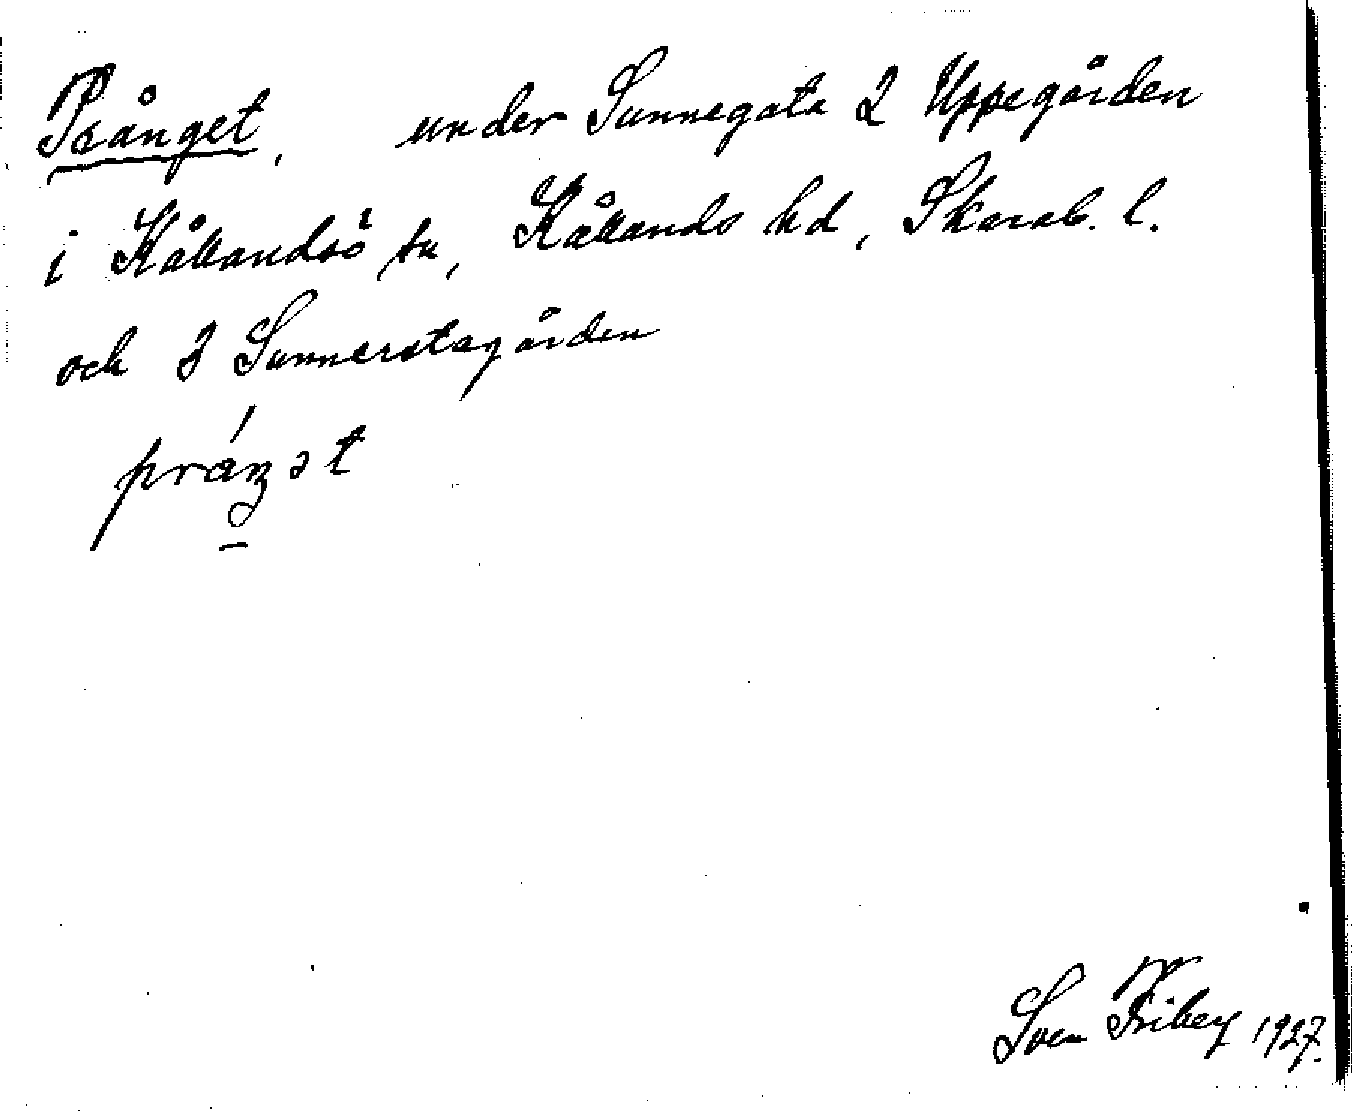 Prånget, under Sunnegata 2 Uppegården
i Kållandsö sn, Kållands hd, Skarab. l.
och 3 Sunnerstagården
práŋət
Sven Friberg 1927.